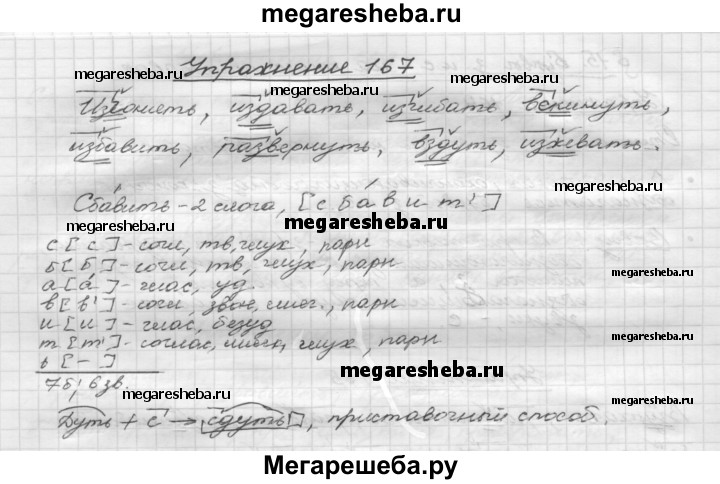 megaresheba.ru
Упражнение 167
megaresheba.ru megaresheba.ru megaresheba.ru
издавать, изгибать, вскинуть,
избавить, развернуть, вздуть, изживать.
megaresheba.ru megaresheba.ru
Сбавить - 2 слога, [с б а́ в и т']
megaresheba.ru
с [с] - согл, тв, глух, парн
megaresheba.ru
б [б] - согл, тв, глух, парн
megaresheba.ru
а [а́] - глас, уд.
в [в'] - согл, звон, мягк., парн
megaresheba.ru
и [и] - глас, безуд
т [т'] - соглас, мягк, глух, парн
megaresheba.ru
ь [-]
7б, 6 зв.
megaresheba.ru
Дуть + с → сдуть, приставочный способ.
megaresheba.ru megaresheba.ru
Мегарешеба.ру